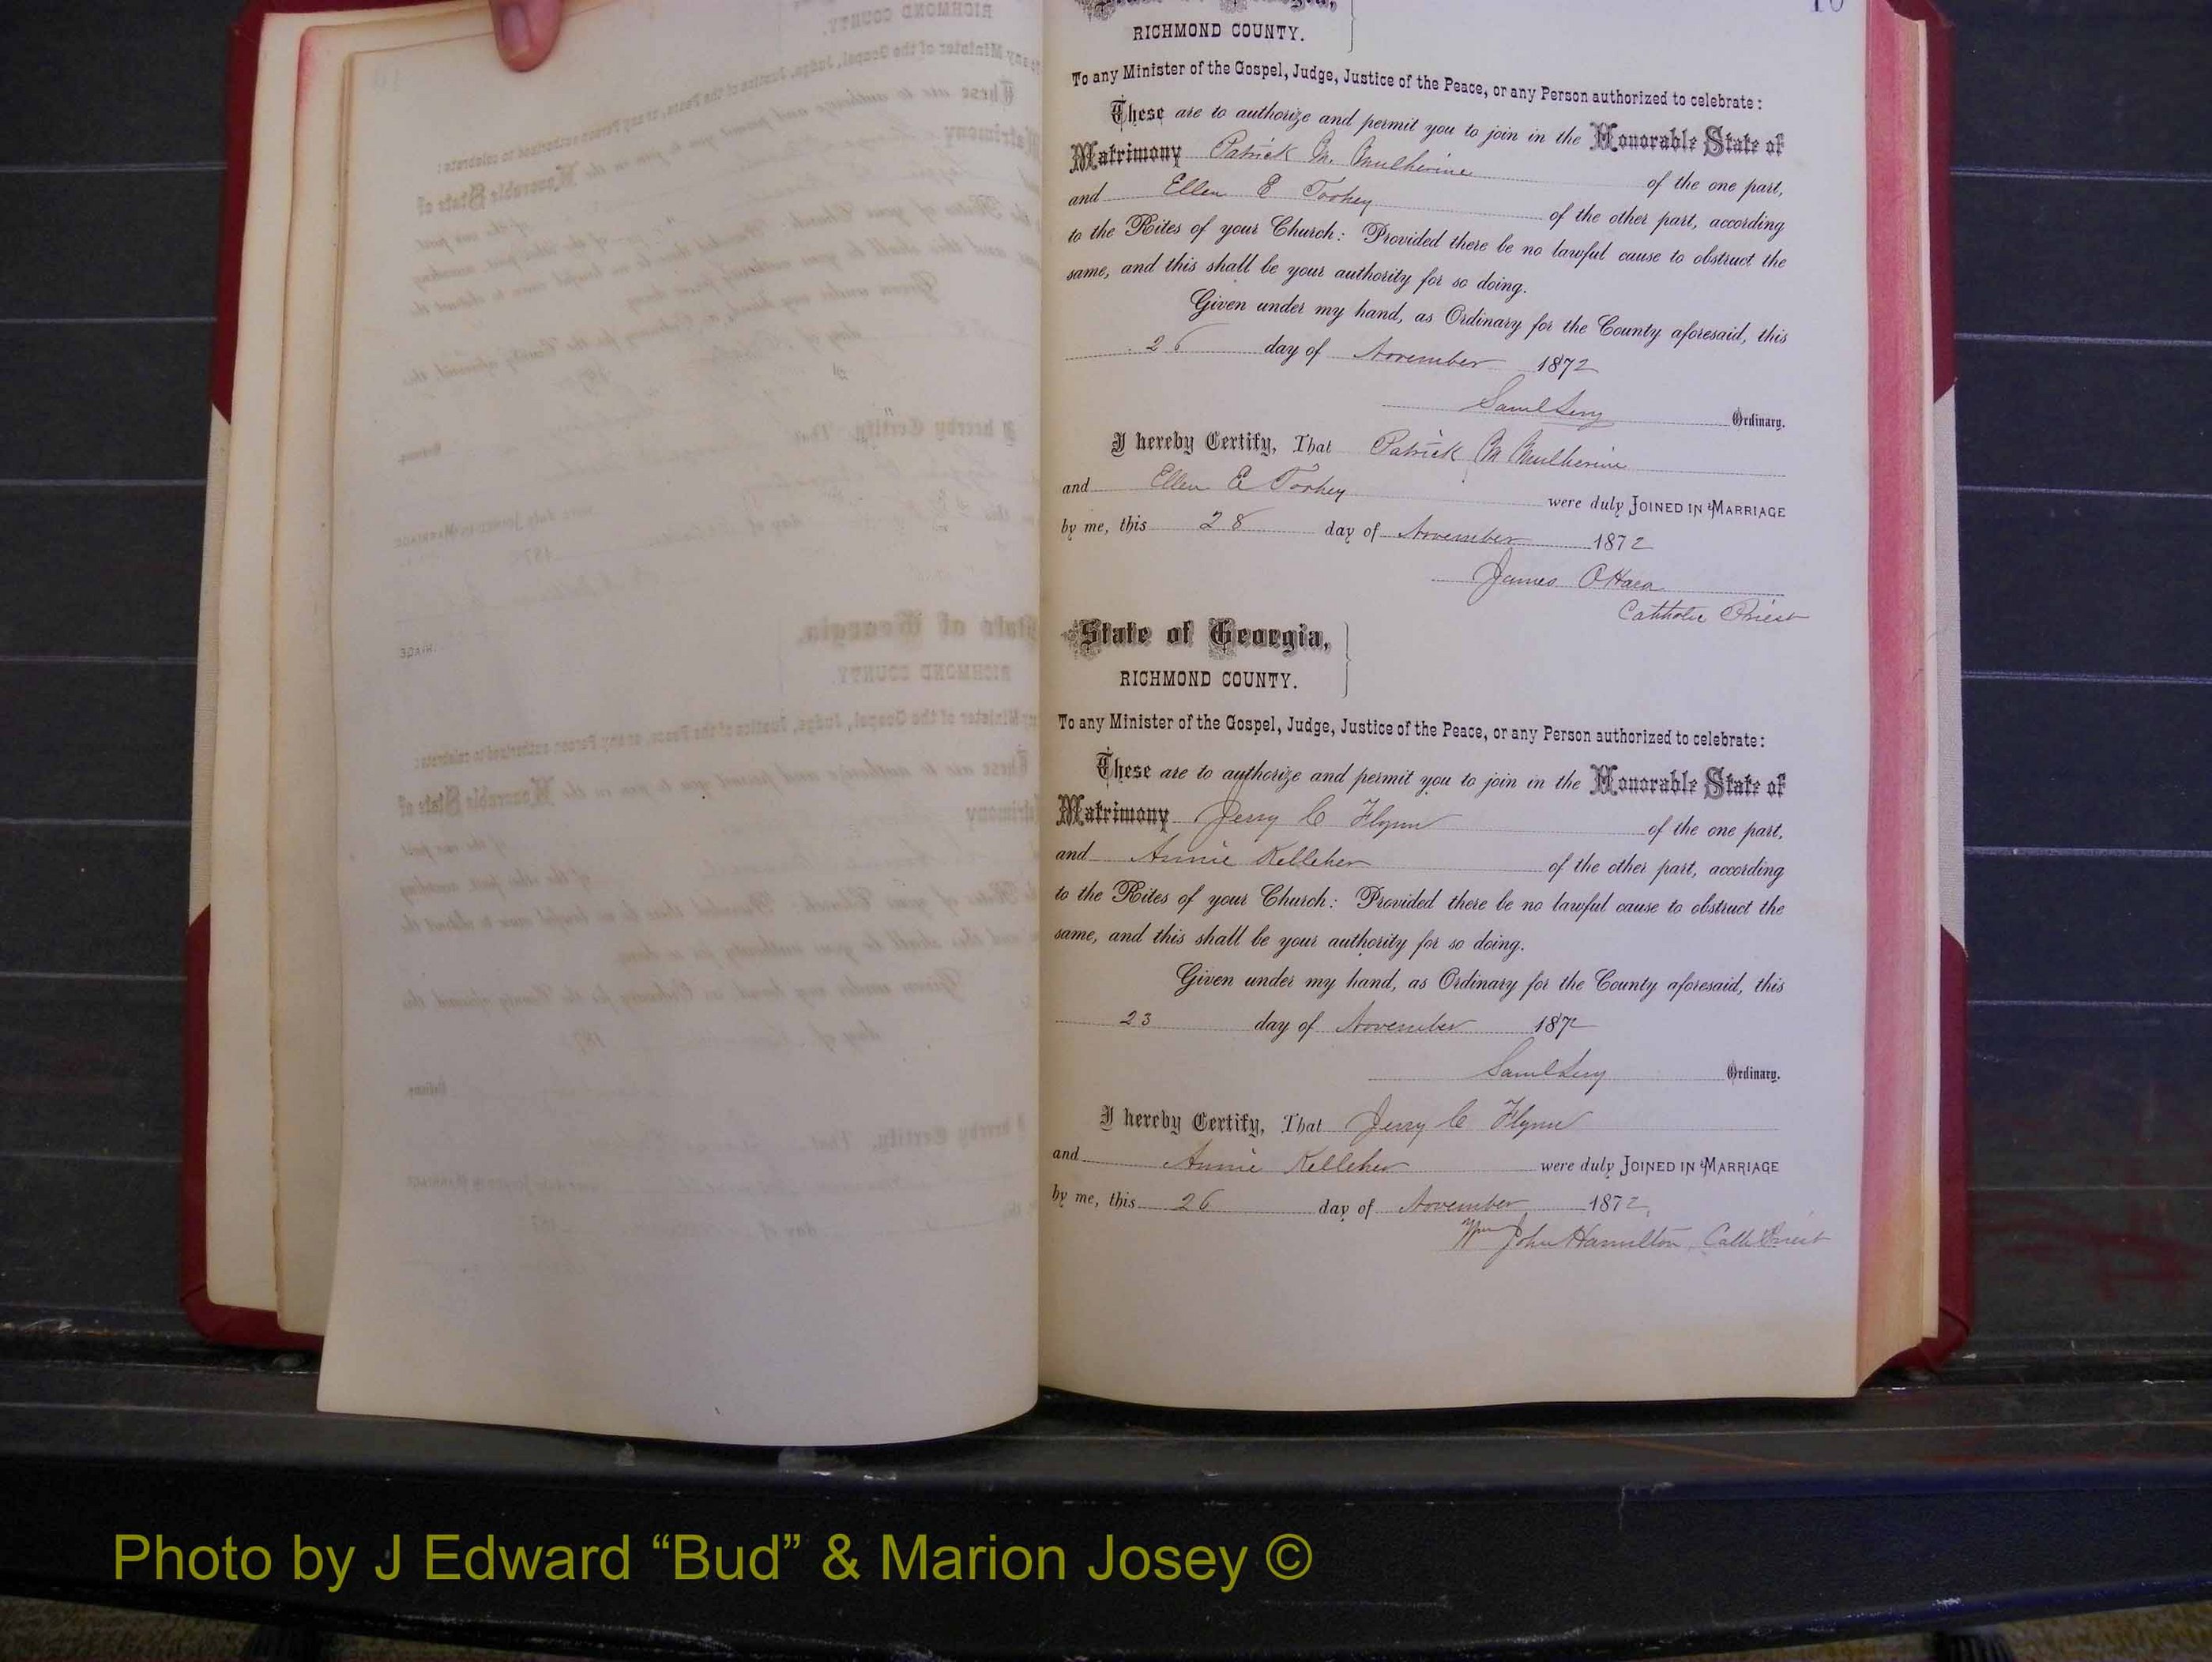 RICHMOND COUNTY.
To any Minister of the Gospel, Judge, Justice of the Peace, or any Person authorized to celebrate:
These are to authorize and permit you to join in the Honorable State of
Matrimony Patrick M. Mulherine of the one part,
and Ellen E Toohey of the other part, according
to the Rites of your Church: Provided there be no lawful cause to obstruct the
same, and this shall be your authority for so doing.
Given under my hand, as Ordinary for the County aforesaid, this
26 day of November 1872
Saml Levy Ordinary.
I hereby Certify, That Patrick M Mulherine
and Ellen E Toohey were duly JOINED IN MARRIAGE
by me, this 28 day of November 1872
James OHara
Catholic Priest
State of Georgia,
RICHMOND COUNTY.
To any Minister of the Gospel, Judge, Justice of the Peace, or any Person authorized to celebrate:
These are to authorize and permit you to join in the Honorable State of
Matrimony Jerry C Flynn of the one part,
and Annie Kelleher of the other part, according
to the Rites of your Church: Provided there be no lawful cause to obstruct the
same, and this shall be your authority for so doing.
Given under my hand, as Ordinary for the County aforesaid, this
23 day of November 1872
Saml Levy Ordinary.
I hereby Certify, That Jerry C Flynn
and Annie Kelleher were duly JOINED IN MARRIAGE
by me, this 26 day of November 1872
Wm John Hamilton Cath Priest
Photo by J Edward “Bud” & Marion Josey ©